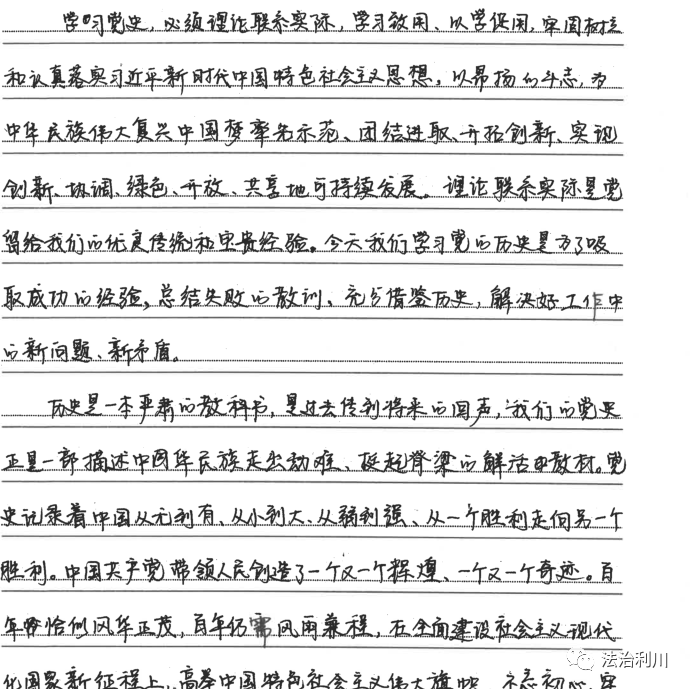 学习党史，必须理论联系实际，学习致用、以学促用，牢固树立
和认真落实习近平新时代中国特色社会主义思想，以昂扬的斗志，为
中华民族伟大复兴中国梦率先示范、团结进取、开拓创新、实现
创新、协调、绿色、开放、共享地可持续发展。理论联系实际是党
留给我们的优良传统和宝贵经验。今天我们学习党的历史是为了吸
取成功的经验，总结失败的教训、充分借鉴历史，解决好工作中
的新问题、新矛盾。
历史是一本严肃的教科书，是过去传到将来的回声，我们的党史
正是一部描述中国华民族走出劫难、挺起脊梁的鲜活教材。党
史记录着中国从无到有、从小到大、从弱到强、从一个胜利走向另一个
胜利。中国共产党带领人民创造了一个又一个辉煌、一个又一个奇迹。百
年恰似风华正茂，百年仍需风雨兼程，在全面建设社会主义现代
化国家新征程上，高举中国特色社会主义伟大旗帜，不忘初心，牢
法治利川